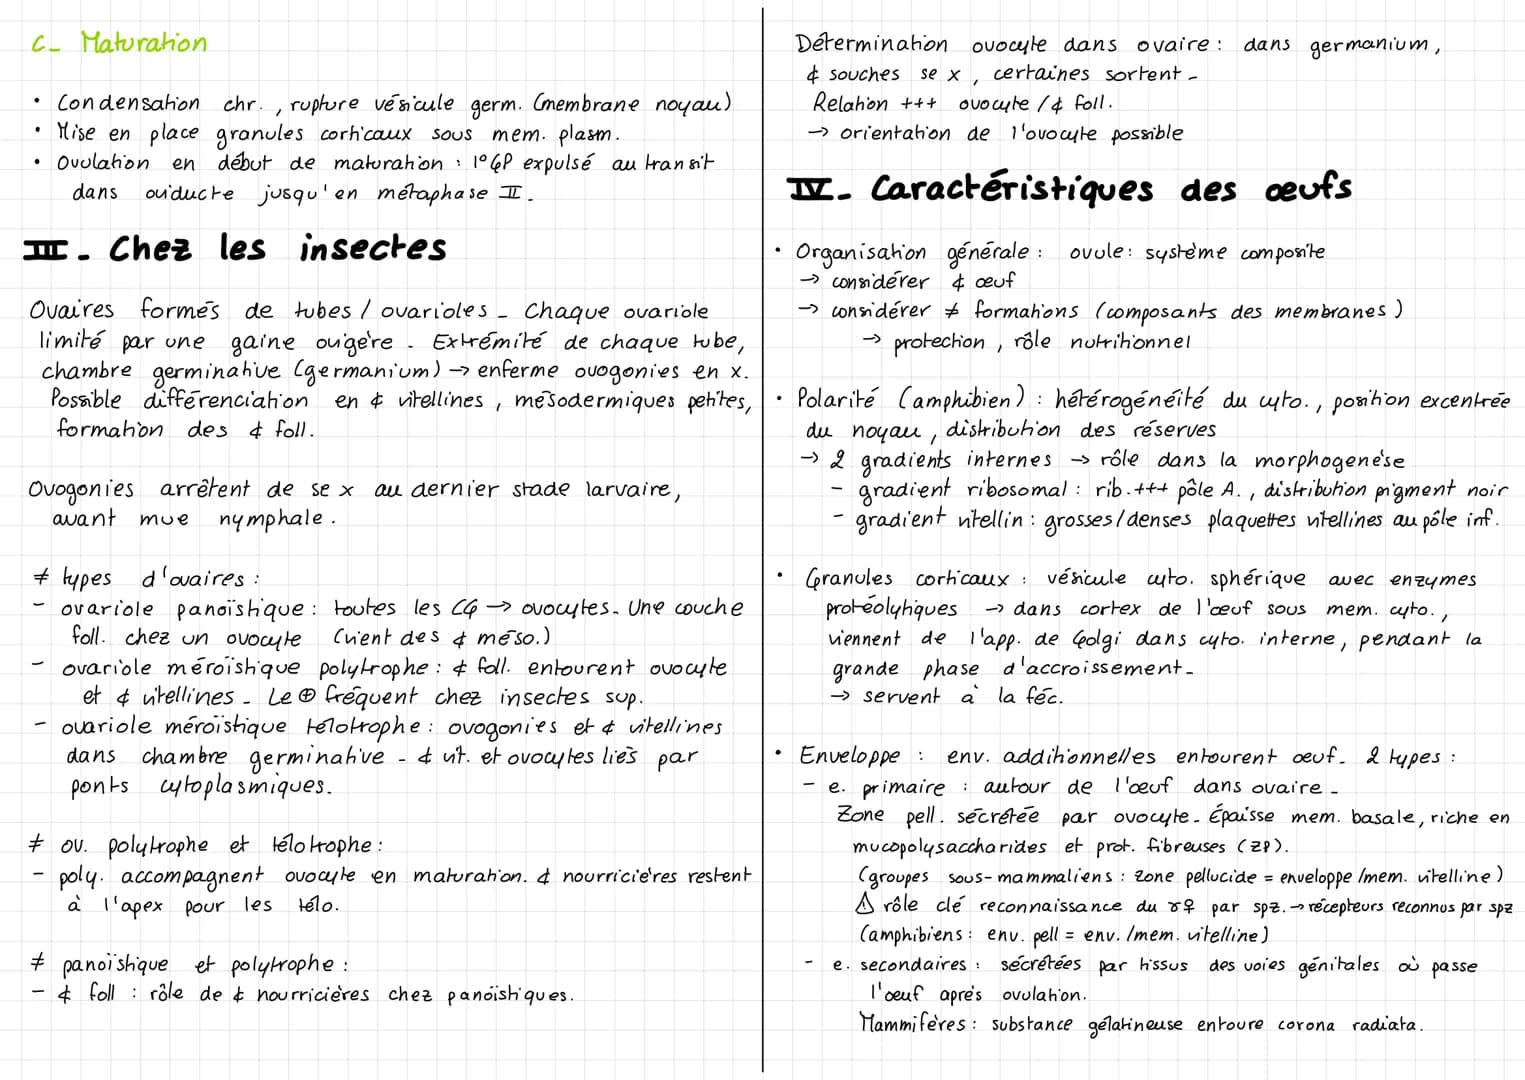 C_ Maturation
• Condensation chr. , rupture vésicule germ. (membrane noyau)
• Mise en place granules corticaux sous mem. plasm.
• Ovulation en début de maturation : 1° GP expulsé au transit
dans oviducte jusqu'en métaphase II.
III. Chez les insectes
Ovaires formés de tubes / ovarioles _ Chaque ovariole
limité par une gaine ovigère . Extrémité de chaque tube,
chambre germinative (germanium) → enferme ovogonies en x.
Possible différenciation en ¢ vitellines , mésodermiques petites,
formation des ¢ foll.
Ovogonies arrêtent de se x au dernier stade larvaire,
avant mue nymphale .
≠ types d'ovaires :
- ovariole panoïstique : toutes les CG → ovocytes. Une couche
foll. chez un ovocyte (vient des ¢ méso.)
- ovariole méroïstique polytrophe : ¢ foll. entourent ovocyte
et ¢ vitellines _ Le ⊕ fréquent chez insectes sup.
- ovariole méroïstique télotrophe : ovogonies et ¢ vitellines
dans chambre germinative - ¢ vit. et ovocytes liés par
ponts cytoplasmiques.
≠ ov. polytrophe et télotrophe :
- poly. accompagnent ovocyte en maturation. ¢ nourricières restent
à l'apex pour les télo.
≠ panoïstique et polytrophe :
- ¢ foll : rôle de ¢ nourricières chez panoïstiques.
Détermination ovocyte dans ovaire : dans germanium,
¢ souches se x , certaines sortent _
Relation +++ ovocyte / ¢ foll.
→ orientation de l'ovocyte possible
IV_ Caractéristiques des œufs
• Organisation générale : ovule : système composite
→ considérer ¢ œuf
→ considérer ≠ formations (composants des membranes)
→ protection , rôle nutritionnel
• Polarité (amphibien) : hétérogénéité du cyto. , position excentrée
du noyau , distribution des réserves
→ 2 gradients internes → rôle dans la morphogenèse
- gradient ribosomal : rib.+++ pôle A. , distribution pigment noir
- gradient vitellin : grosses/denses plaquettes vitellines au pôle inf.
• Granules corticaux : vésicule cyto. sphérique avec enzymes
protéolytiques → dans cortex de l'œuf sous mem. cyto.,
viennent de l'app. de Golgi dans cyto. interne, pendant la
grande phase d'accroissement_
→ servent à la féc.
• Enveloppe : env. additionnelles entourent oeuf_ 2 types :
- e. primaire : autour de l'œuf dans ovaire _
Zone pell. sécrétée par ovocyte_ Épaisse mem. basale, riche en
mucopolysaccharides et prot. fibreuses (ZP).
(groupes sous-mammaliens : zone pellucide = enveloppe/mem. vitelline)
⚠ rôle clé reconnaissance du ♀ par spz. → récepteurs reconnus par spz
(amphibiens : env. pell = env. /mem. vitelline)
- e. secondaires : sécrétées par tissus des voies génitales où passe
l'œuf après ovulation.
Mammifères : substance gélatineuse entoure corona radiata.